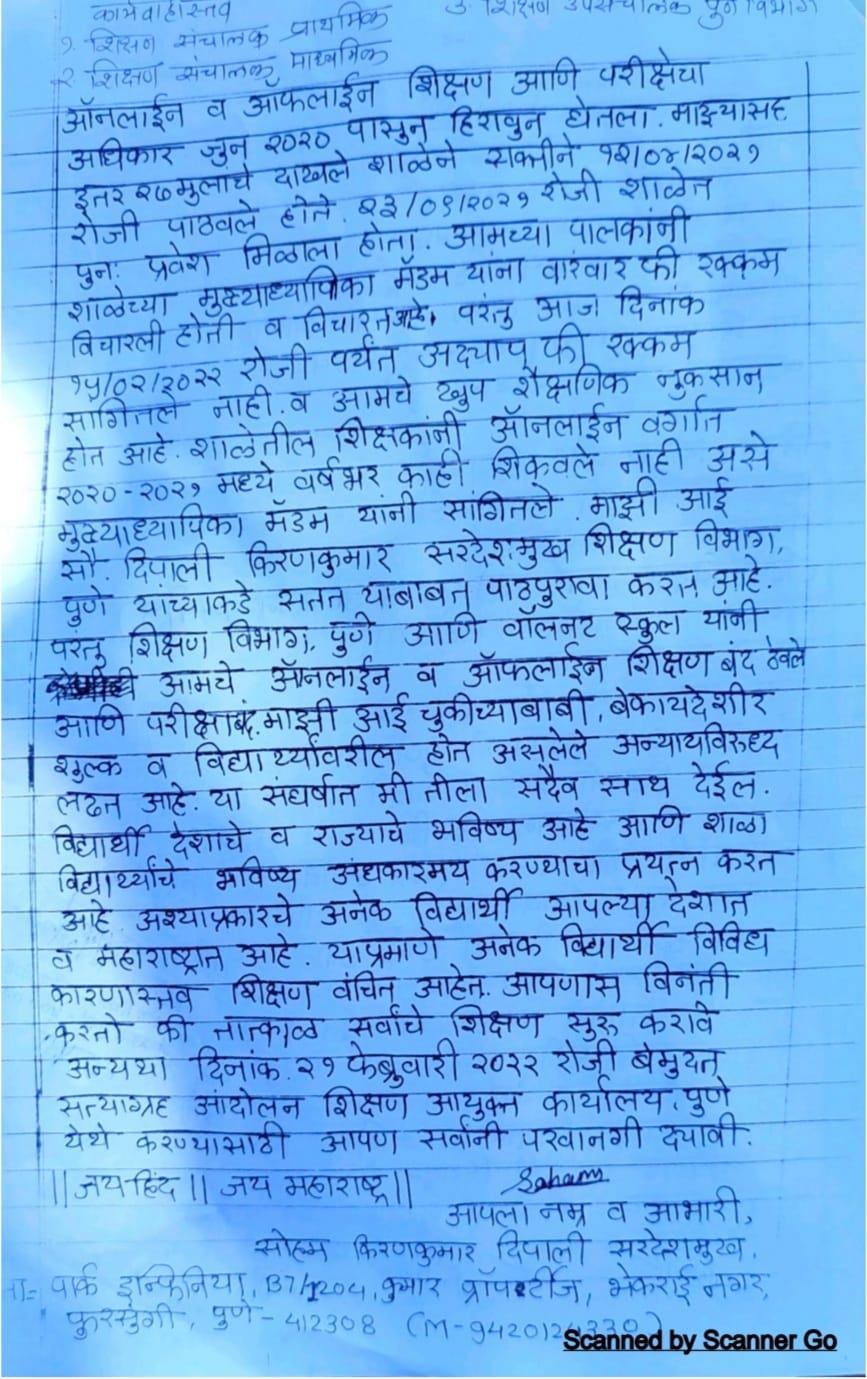 कार्यवाहीस्तव ३. शिक्षण उपसंचालक पुणे विभाग
१. शिक्षण संचालक प्राथमिक
२. शिक्षण संचालक माध्यमिक
ऑनलाईन व ऑफलाईन शिक्षण आणि परीक्षेचा
अधिकार जुन २०२० पासुन हिरावुन घेतला. माझ्यासह
इतर २७ मुलांचे दाखले शाळेने सक्तीने १२/०४/२०२१
रोजी पाठवले होते. २३/०९/२०२१ रोजी शाळेत
पुनः प्रवेश मिळाला होता. आमच्या पालकांनी
शाळेच्या मुख्याध्यापिका मॅडम यांना वारंवार फी रक्कम
विचारली होती व विचारत आहे. परंतु आज दिनांक
१५/०२/२०२२ रोजी पर्यंत अद्याप फी रक्कम
सांगितले नाही. व आमचे खुप शैक्षणिक नुकसान
होत आहे. शाळेतील शिक्षकांनी ऑनलाईन वर्गात
२०२०-२०२१ मध्ये वर्षभर काही शिकवले नाही असे
मुख्याध्यापिका मॅडम यांनी सांगितले. माझी आई
सौ. दिपाली किरणकुमार सरदेशमुख शिक्षण विभाग,
पुणे यांच्याकडे सतत याबाबत पाठपुरावा करत आहे.
परंतु शिक्षण विभाग, पुणे आणि वॉलनट स्कुल यांनी
आमचे ऑनलाईन व ऑफलाईन शिक्षण बंद ठेवले
आणि परीक्षाबंद. माझी आई चुकीच्याबाबी, बेकायदेशीर
शुल्क व विद्यार्थ्यांवरील होत असलेले अन्यायविरुध्द
लढत आहे. या संघर्षात मी तीला सदैव साथ देईल.
विद्यार्थी देशाचे व राज्याचे भविष्य आहे आणि शाळा
विद्यार्थ्यांचे भविष्य अंधकारमय करण्याचा प्रयत्न करत
आहे. अश्याप्रकारचे अनेक विद्यार्थी आपल्या देशात
व महाराष्ट्रात आहे. याप्रमाणे अनेक विद्यार्थी विविध
कारणास्तव शिक्षण वंचित आहेत. आपणास विनंती
करतो की तात्काळ सर्वांचे शिक्षण सुरु करावे
अन्यथा दिनांक. २१ फेब्रुवारी २०२२ रोजी बेमुदत
सत्याग्रह आंदोलन शिक्षण आयुक्त कार्यालय, पुणे
येथे करण्यासाठी आपण सर्वांनी परवानगी द्यावी.
||जय-हिंद || जय महाराष्ट्र|| Soham
आपला नम्र व आभारी,
सोहम किरणकुमार दिपाली सरदेशमुख.
पार्क इन्फिनिया, B7/1204, कुमार प्रॉपर्टीज, भेकराई नगर,
फुरसुंगी, पुणे - 412308
Scanned by Scanner Go